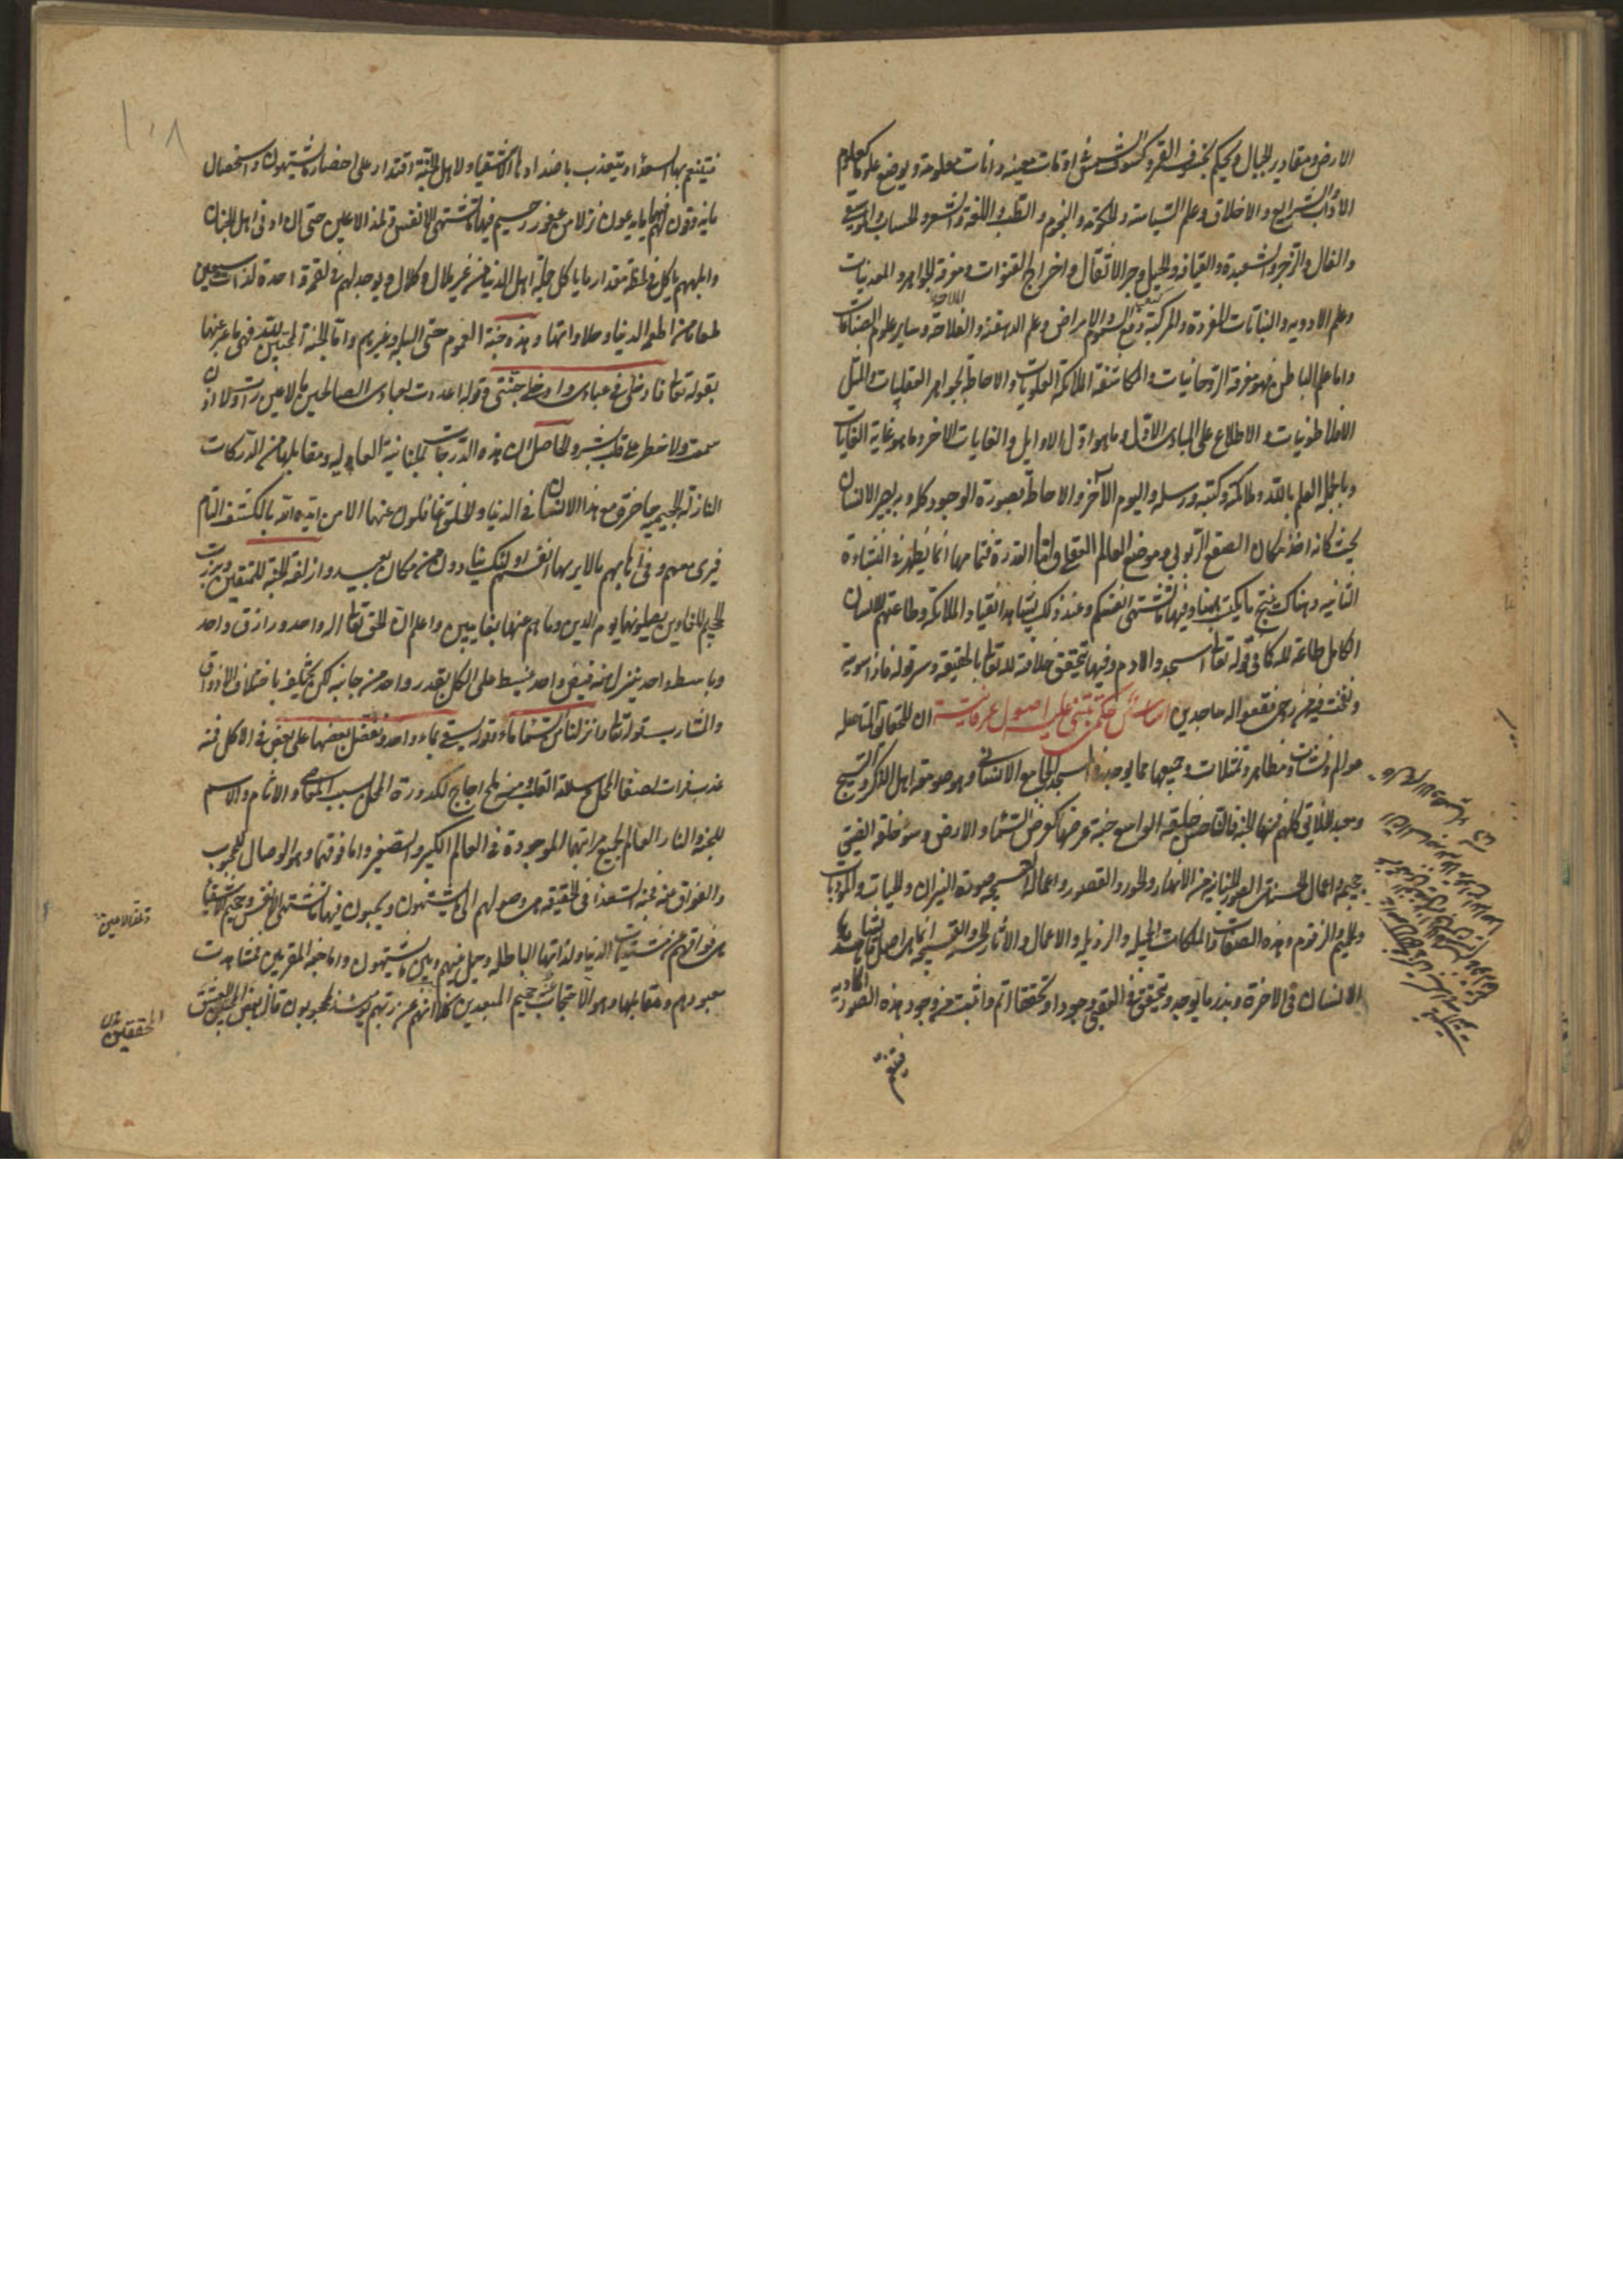 الارض ومقادير الجبال ويحكم بخسوف القمر وكسوف الشمس في اوقات معينه وآنات معلومة ويوضع علوما كعلوم
الآداب والشرايع والاخلاق وعلم السياسة والحكمة والنجوم والطب واللغة والشعر والحساب والموسيقي
والفال والزجر والشعبدة والقيافة والحيل وجر الاثقال واخراج القنوات ومعرفة الجواهر والمعدنيات
وعلم الادويه والنباتات المفردة والمركبة لدفع السموم والامراض وعلم الدهقنة والفلاحة وساير علوم الصناعات
واما علم الباطن فهو معرفة الروحانيات والمكاشفة الملائكة العلويات والاحاطة بالجواهر العقليات والمثل
الافلاطونيات والاطلاع على المبادى الاول وما هو اول الاوايل والغايات الاخر وما هو غاية الغايات
وبالجملة العلم بالله وملائكته وكتبه ورسله واليوم الآخر والاحاطة بصورة الوجود كله وبه يصير الانسان
بحيث كانه اخذ مكان الصقع الربوبي وموضع العالم العقلي واما القدرة فتمامها انما يظهر في النشاءة
الثانيه وهناك ينتج ما يكتسب هيهنا وفيها ما تشتهى انفسكم وعند ذلك يشاهد انقياد الملائكة وطاعتهم للانسان
الكامل طاعة لله كما في قوله تعالى اسجدوا لادم وفيها يتحقق خلافة الله تعالى بالحقيقة وسر قوله فاذا سويته
ونفخت فيه من روحى فقعوا له ساجدين اساس حكمى يبتنى عليه اصول عرفانية ان للحقايق المتاصله
عوالم ونشئات ومظاهر وتمثلات وجميعها مما يوجد في هذا المسجد الجامع الانسانى وهو صومعة اهل الذكر والتسبيح
ومعبد الخلائق كلهم فمنها الجنة فالقاصد خليقه الواسع جنة عرضها كعرض السماء والارض وسوء خلقه الضيق
جحيمه واعمال الحسنه هى الصور الجنانية من الانهار والحور والقصور واعماله القبيحه صورة النيران والحيات والموذيات
والحميم والزقوم وهذه الصفات والملكات الجميله والرذيله والاعمال والاثار الحسنه والقبيحه انما هى اصل ما يشاهدها
الانسان فى الاخرة وبذر ما يوجد ويتحقق في العقبى وجودا وتحققا اتم واثبت من وجود هذه الصور المادية
فيتنعم
فيتنعم بها السعداء ويتعذب باضدادها الاشقياء ولاهل الجنة اقتدار على احضار ما يشتهون واستحصال
ما يذوقون فلهم فيها ما يدعون نزلا من غفور رحيم فيها ما تشتهى الانفس وتلذ الاعين حتى ان ادنى اهل الجنان
وابلههم ياكل في لحظة مقدار ما ياكل جملة اهل الدنيا من غير ملال وكلال ويوجد لهم في لقمة واحدة لذات سبعين
طعاما من اطعمة الدنيا وحلاواتها وهذه جنة العموم حتى البله وغيرهم واما الجنة المختصة بالله فهى ما عبر عنها
بقوله تعالى فادخلى في عبادى وادخلى جنتى وقوله اعددت لعبادى الصالحين ما لا عين رات ولا اذن
سمعت ولا خطر على قلب بشر والحاصل ان هذه الدرجات الجنانية العاليه ومقابلها من الدركات
النازلة الجحيميه حاضرة مع هذا الانسان في الدنيا والخلق غافلون عنها الا من ايده الله بالكشف التام
فيرى معهم وفي آثارهم ما لا يريها انفسهم اولئك ينادون من مكان بعيد وازلفت الجنة للمتقين وبرزت
الجحيم للغاوين يصلونها يوم الدين وما هم عنها بغايبين واعلم ان للحق تعالى اله واحد ورازق واحد
وباسط واحد ينزل منه فيض واحد منبسط على الكل بقدر واحد من جانبه لكن يختلف باختلاف الاذواق
والمشارب قوله تعالى وانزلنا من السماء ماء وقوله يسقى بماء واحد ونفضل بعضها على بعض في الاكل فمنه
عذب فرات لصفا المحل وسلامة القلب ومنه ملح اجاج لكدورة المحل بسبب المعاصي والاثام والاسم
للجنة والنار العالم لجميع مراتبها الموجودة في العالم الكبير والصغير واما فوقهما وهو الوصال للمحبوب
والفراق عنه فجنة السعداء في الحقيقة هى وصولهم الى ما يشتهون ويحبون فيها ما تشتهى الانفس وجحيم الاشقيا
هى فراقهم عن مشتهيات الدنيا ولذاتها الباطله وحيل بينهم وبين ما يشتهون واما جنة المقربين بمشاهدة
معبودهم ومقابلها وهو الاحتجاب عنه جحيم المبعدين كلا انهم عن ربهم يومئذ لمحجوبون قال بعض المحققين
وتلذ الاعين
المحققين
١٠٨